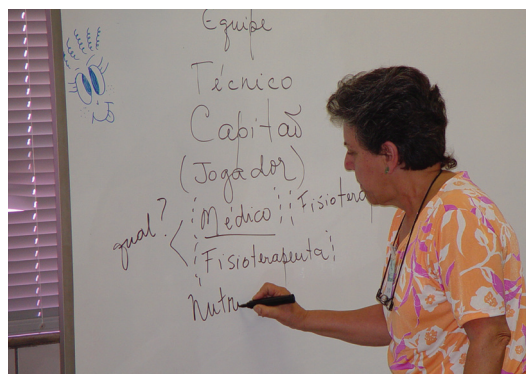 Equipe
Técnico
Capitaõ
(Jogador)
qual?
Médico
Fisiotera
Fisioterapeuta
Nutri